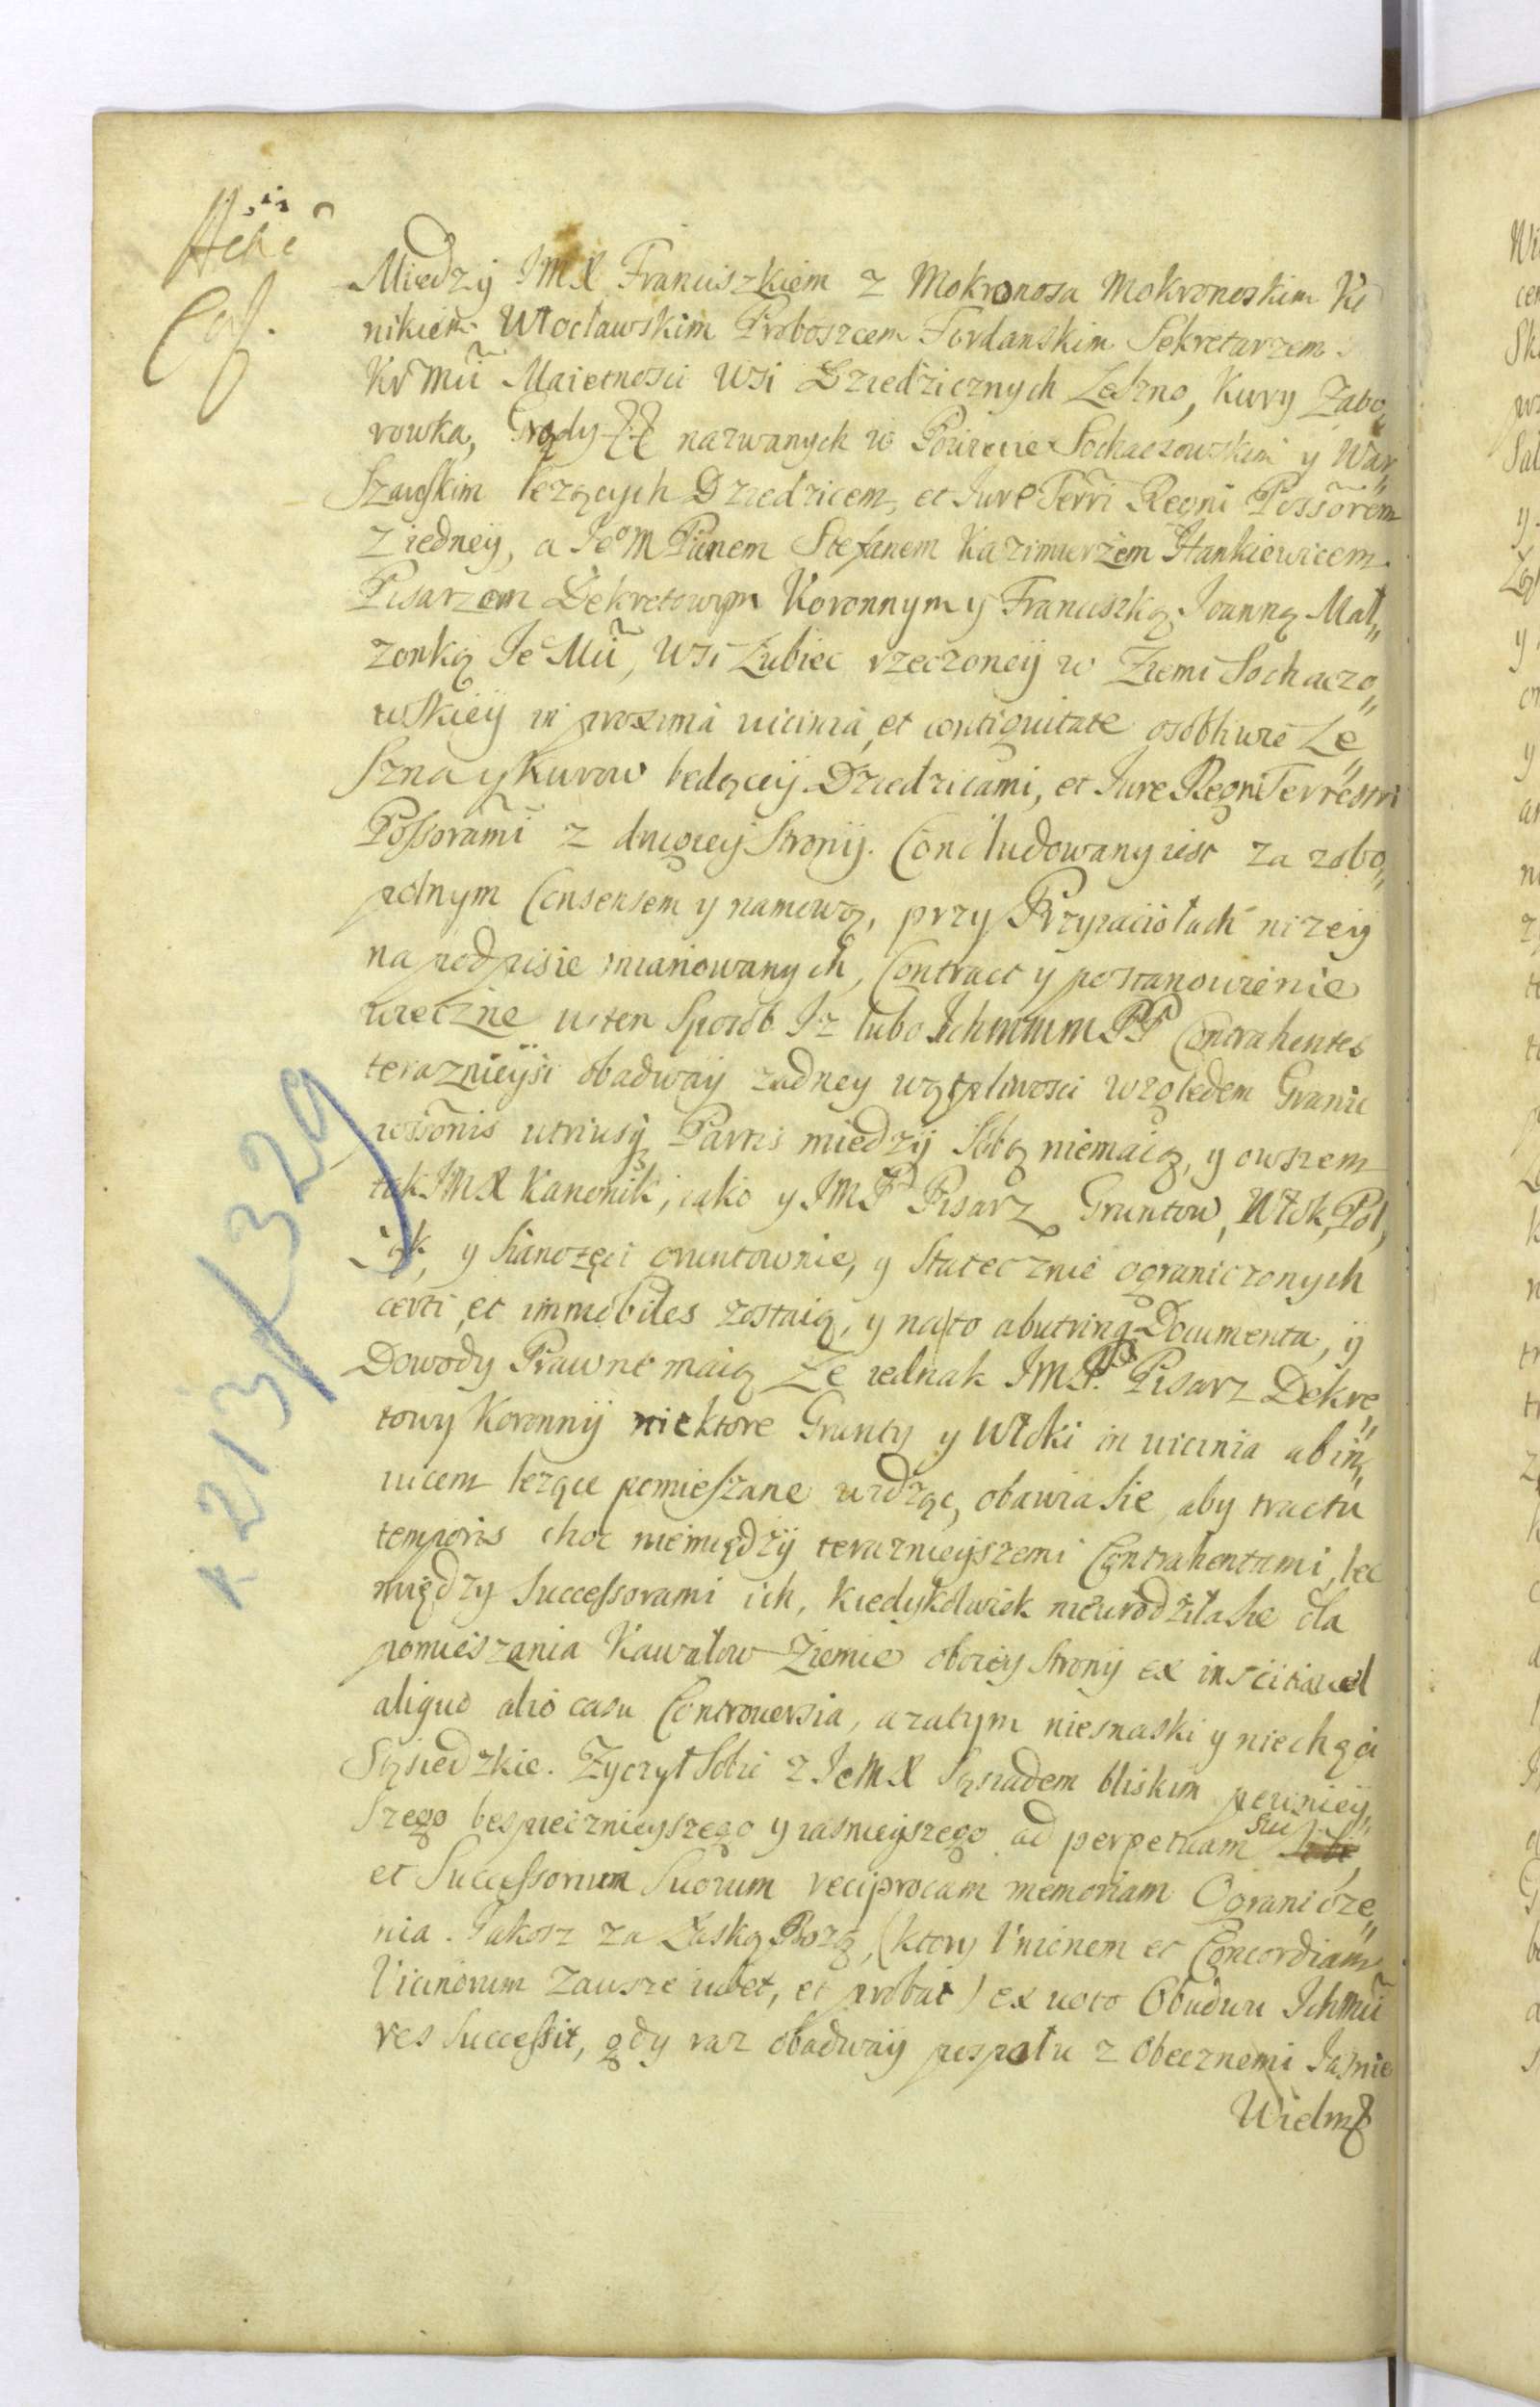 Miedzÿ JMX Franciszkiem z Mokronosa Mokronoskim K
nikiem Włocławskim Proboszcem Fordanskim Sekretarzem
Maietnosci Wsi Dziedzicznych Leszno, Kury Zabo„
rowka, Grądy nazwanych w Powiecie Sochaczowskim y War„
szawskim lezących Dziedzicem, et Jure Terri Regni Possorem
z iedneÿ, a Jeo M Panem Stefanem Kazimierzem Stankiewicem
Pisarzem Dekretowym Koronnym y Franciszką Joanną Mał„
zonką Je Mci, Wsi Łubiec rzeczoneÿ w Ziemi Sochaczo„
wskieÿ in proxima uicinia, et contiguitate osobliwie Le„
szna y Kurow bedąceÿ Dziedzicami, et Jure Regni Terrestri
Possorami z drugieÿ Stronÿ. Concludowany iest za zobo„
polnym Consensem y namową, przy Przyiaciołach nizeiÿ
na podpisie mianowanych, Contract ÿ postanowienie
wieczne w ten Sposób Jz lubo Ichmmm PP Contrahentes
teraznieÿsi obadwaÿ zadney wątpliwosci względem Granic
possonis utriusq Partis miedzÿ Sobą niemaią, y owszem
tak JMX Kanonik, iako y JMP Pisarz Gruntow, Włok, Pol,
Łąk, y Sianozęci gruntownie, y Statecznie ograniczonych
certi, et immobiles zostaią, y na to abutrinq Documenta, ÿ
Dowody Prawne maią Ze iednak JMP. Pisarz Dekre„
towy Koronnÿ niektore Grunty y Włoki in uicinia abin„
uicem lezące pomieszane widząc, obawia sie, aby tractu
temporis choc niemiędzÿ terazniejszemi Contrahentami, lec
między Successorami ich, kiedykolwiek nieurodziła sie dla
pomieszania Kawałow Ziemie oboiey Stronÿ ex inscitia uel
aliquo alio casu Controuersia, a zatym niesnaski y niechęci
Sąsiedzkie. Zyczył Sobie z JeMX Sąsiadem bliskim pewnieÿ„
szego bespiecznieyszego y iasnieyszego ad perpetuam sui
et Successorum Suorum reciprocam memoriam Ogranicze„
nia. Jakosz za Łaską Bozą, (ktory Vnionem et Concordiam
Vicinorum zawsze iubet, et probat) ex uoto Obudwu Ichmci
res Successit, gdy raz obadwaÿ pospołu z Obecznemi Jasnie
Wielm
213/329